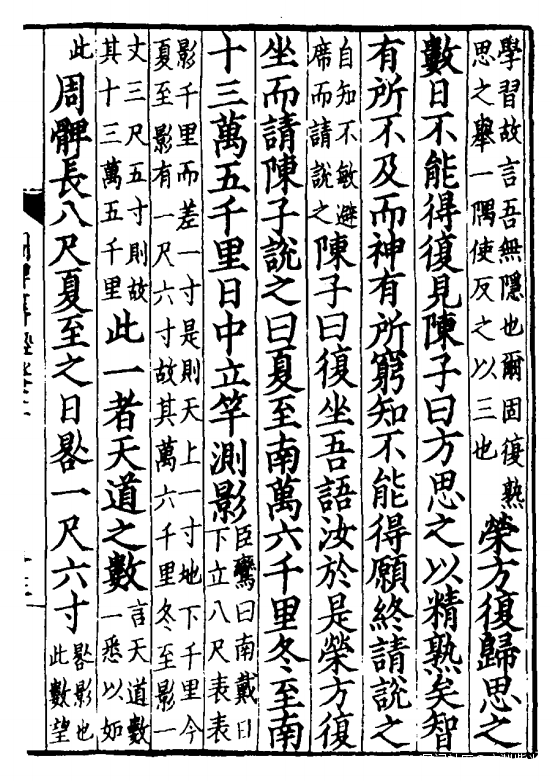 學習故言吾無隱也爾固復熟
思之舉一隅使反之以三也
榮方復歸思之
數日不能得復見陳子曰方思之以精熟矣智
有所不及而神有所窮知不能得願終請說之
自知不敏避
席而請說之
陳子曰復坐吾語汝於是榮方復
坐而請陳子說之曰夏至南萬六千里冬至南
十三萬五千里日中立竿測影
臣鸞曰南戴日
下立八尺表表
影千里而差一寸是則天上一寸地下千里今
夏至影有一尺六寸故其萬六千里冬至影一
丈三尺五寸則故
其十三萬五千里
此一者天道之數
言天道數
一悉以如
此
周髀長八尺夏至之日晷一尺六寸
晷影也
此數望